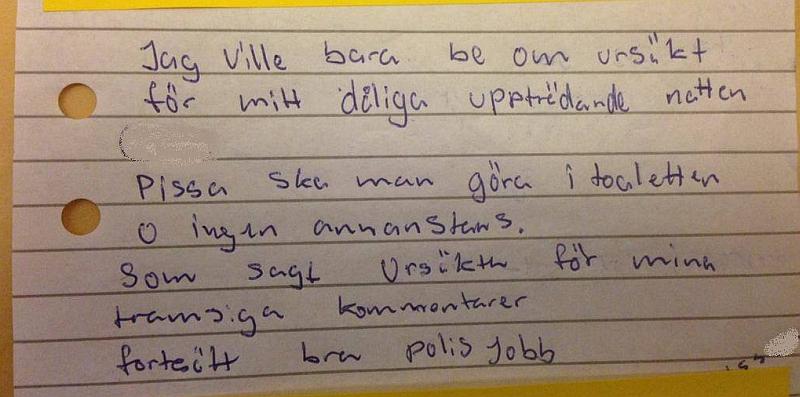 Jag ville bara be om ursäkt
för mitt dåliga uppträdande natten
Pissa ska man göra i toaletten
o ingen annanstans.
Som sagt Ursäkta för mina
tramsiga kommentarer
fortsätt bra polis jobb